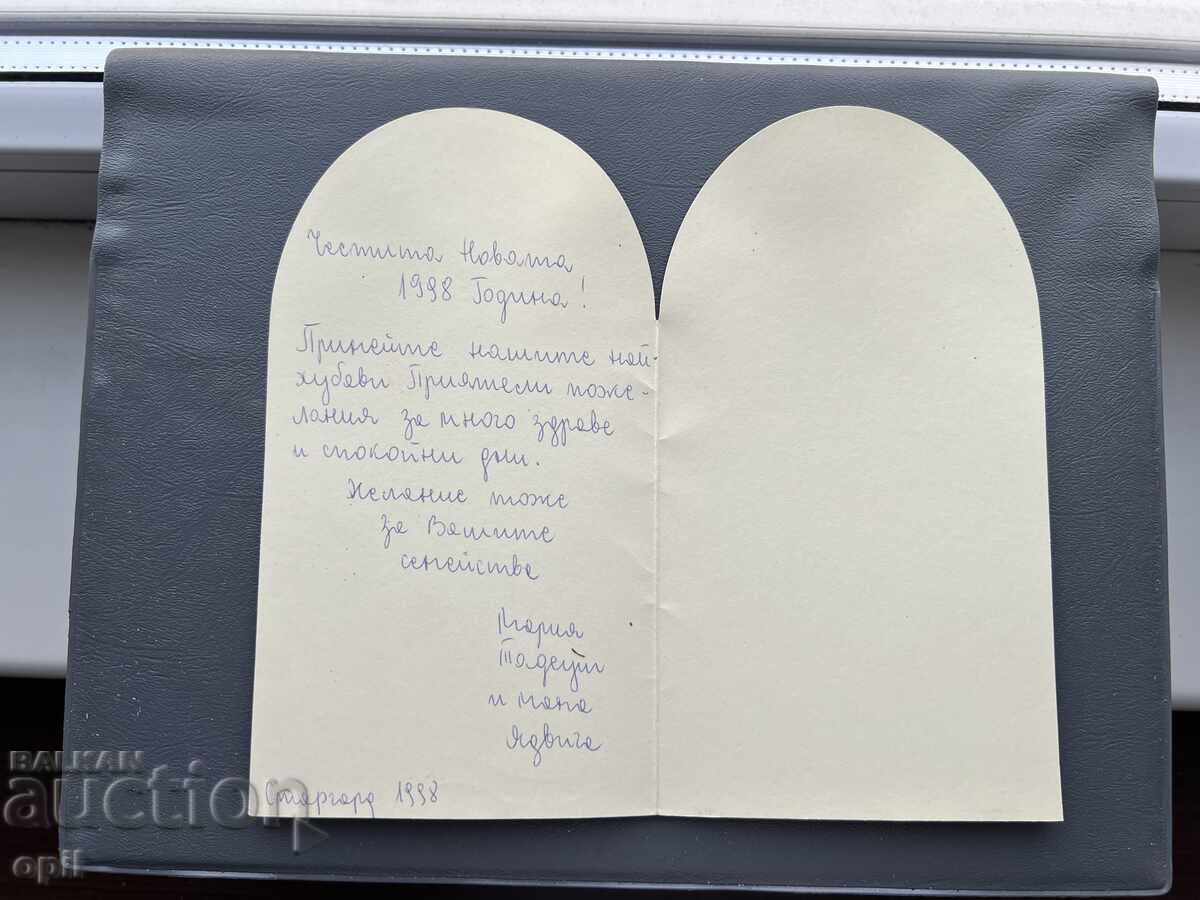 Честита Новята
1998 Година!
Принейте нашите най-
хубави Приятели поже-
лания за много здраве
и спокойни дни.
Желание тоже
за Вашите
семейства
Мария
Тадеуш
и мама
Ядвига
Старгард 1998
BALKAN
auction
opil